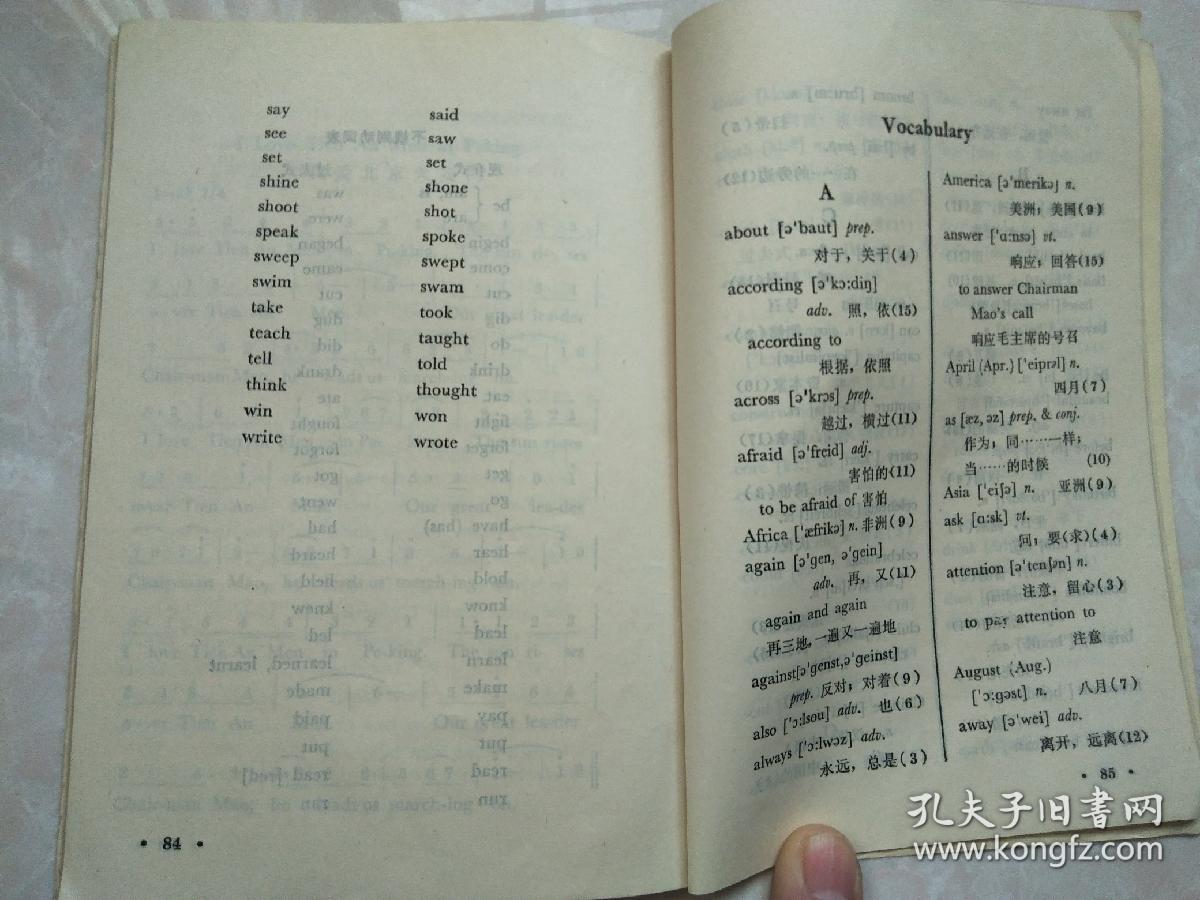 say said
see saw
set set
shine shone
shoot shot
speak spoke
sweep swept
swim swam
take took
teach taught
tell told
think thought
win won
write wrote
• 84 •
Vocabulary
A
about [ə'baut] prep.
对于，关于(4)
according [ə'kɔ:diŋ]
adv. 照，依(15)
according to
根据，依照
across [ə'krɔs] prep.
越过，横过(11)
afraid [ə'freid] adj.
害怕的(11)
to be afraid of 害怕
Africa ['æfrikə] n. 非洲(9)
again [ə'gen, ə'gein]
adv. 再，又(11)
again and again
再三地，一遍又一遍地
against[ə'genst,ə'geinst]
prep. 反对；对着(9)
also ['ɔ:lsou] adv. 也(6)
always ['ɔ:lwəz] adv.
永远，总是(3)
America [ə'merikə] n.
美洲；美国(9)
answer ['ɑ:nsə] vt.
响应；回答(15)
to answer Chairman
Mao's call
响应毛主席的号召
April (Apr.) ['eiprəl] n.
四月(7)
as [æz, əz] prep. & conj.
作为；同……一样；
当……的时候 (10)
Asia ['eiʃə] n. 亚洲(9)
ask [ɑ:sk] vt.
问；要(求)(4)
attention [ə'tenʃən] n.
注意，留心(3)
to pay attention to
注意
August (Aug.)
['ɔ:gəst] n. 八月(7)
away [ə'wei] adv.
离开，远离(12)
• 85 •
孔夫子旧书网
www.kongfz.com